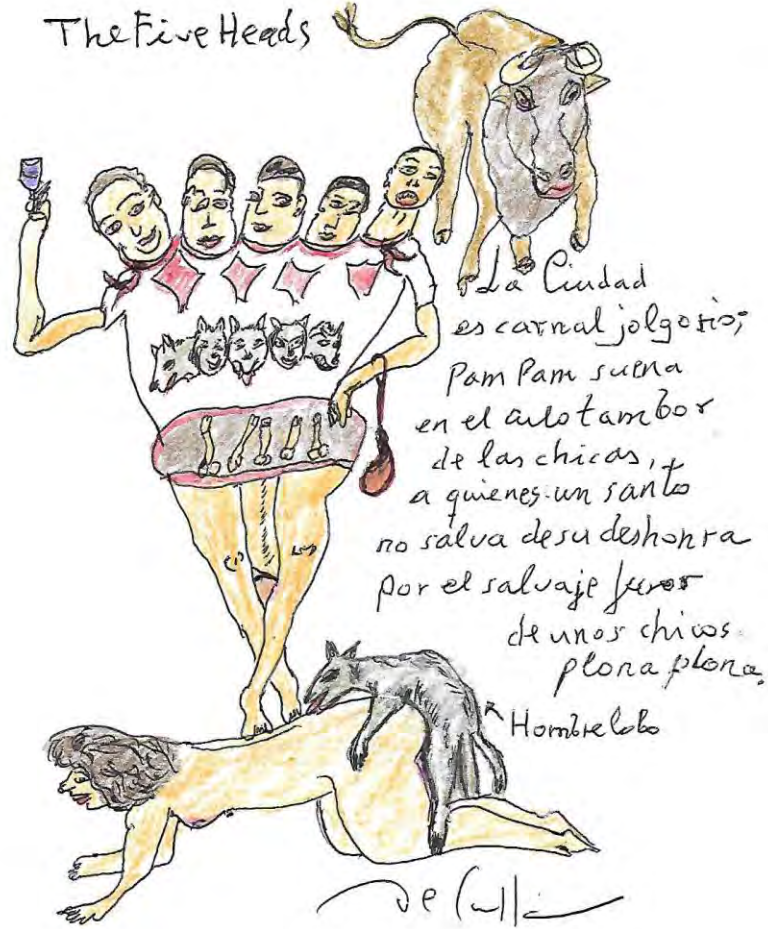 The Five Heads
La Ciudad
es carnal jolgorio;
Pam Pam suena
en el culo tambor
de las chicas,
a quienes un santo
no salva de su deshonra
por el salvaje furor
de unos chicos
plona plona.
Hombre lobo